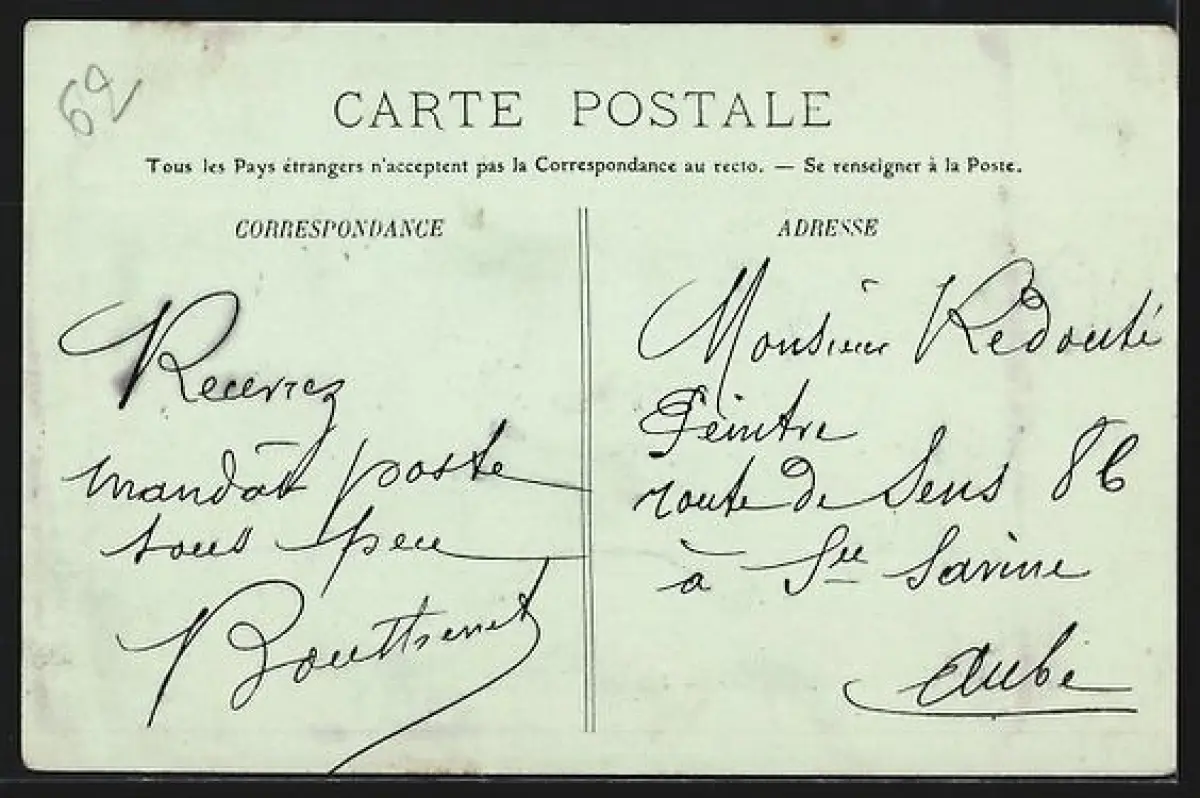 62
CARTE POSTALE
Tous les Pays étrangers n'acceptent pas la Correspondance au recto. — Se renseigner à la Poste.
CORRESPONDANCE
Recevrez
mandat poste
sous peu
ADRESSE
Monsieur Redouté
Peintre
route de Sens 86
à Ste Savine
Aube